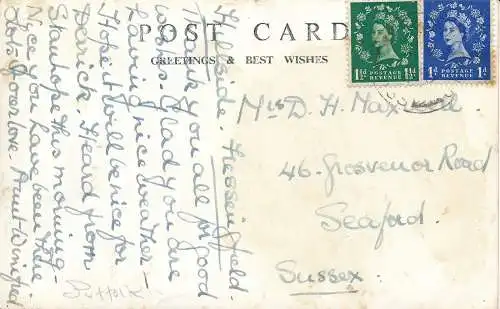 POST CARD
GREETINGS & BEST WISHES
1½d POSTAGE REVENUE 1½d
1d POSTAGE REVENUE 1d
Hillside. Fressingfield.
Thank you all for good
wishes. Glad you are
having nice weather.
Hope it will be nice for
Derrick. Heard from
Stanhope this morning.
Nice you have been there.
Lots of love. Aunt Winifred
Suffolk
Mrs D. H. Max
46. Grosvenor Road
Seaford.
Sussex.